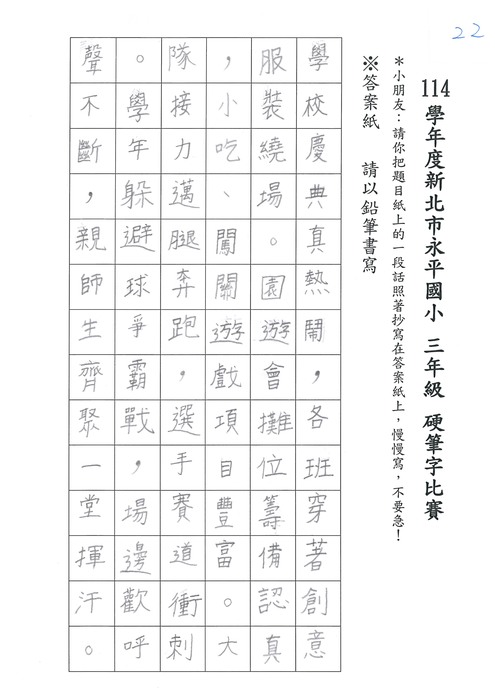 22
114學年度新北市永平國小 三年級 硬筆字比賽
＊小朋友：請你把題目紙上的一段話照著抄寫在答案紙上，慢慢寫，不要急！
※答案紙 請以鉛筆書寫
學校慶典真熱鬧，各班穿著創意
服裝繞場。園遊會攤位籌備認真
，小吃、闖關遊戲項目豐富。大
隊接力邁腿奔跑，選手賽道衝刺
。學年躲避球爭霸戰，場邊歡呼
聲不斷，親師生齊聚一堂揮汗。